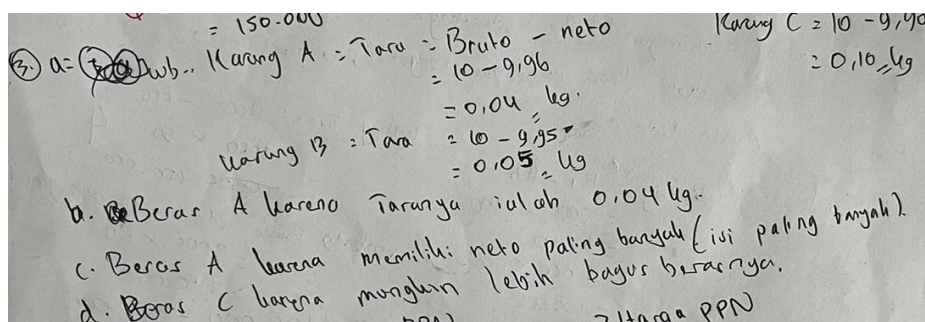 = 150.000
③ a = Jwb.. Karung A = Tara = Bruto - neto
= 10 - 9,96
= 0,04 kg.
Karung B = Tara = 10 - 9,95
= 0,05 kg
Karung C = 10 - 9,90
= 0,10 kg
b. Beras A karena Taranya ialah 0.04 kg.
c. Beras A karena memiliki neto paling banyak (isi paling banyak).
d. Beras C karena mungkin lebih bagus berasnya.
Harga PPN